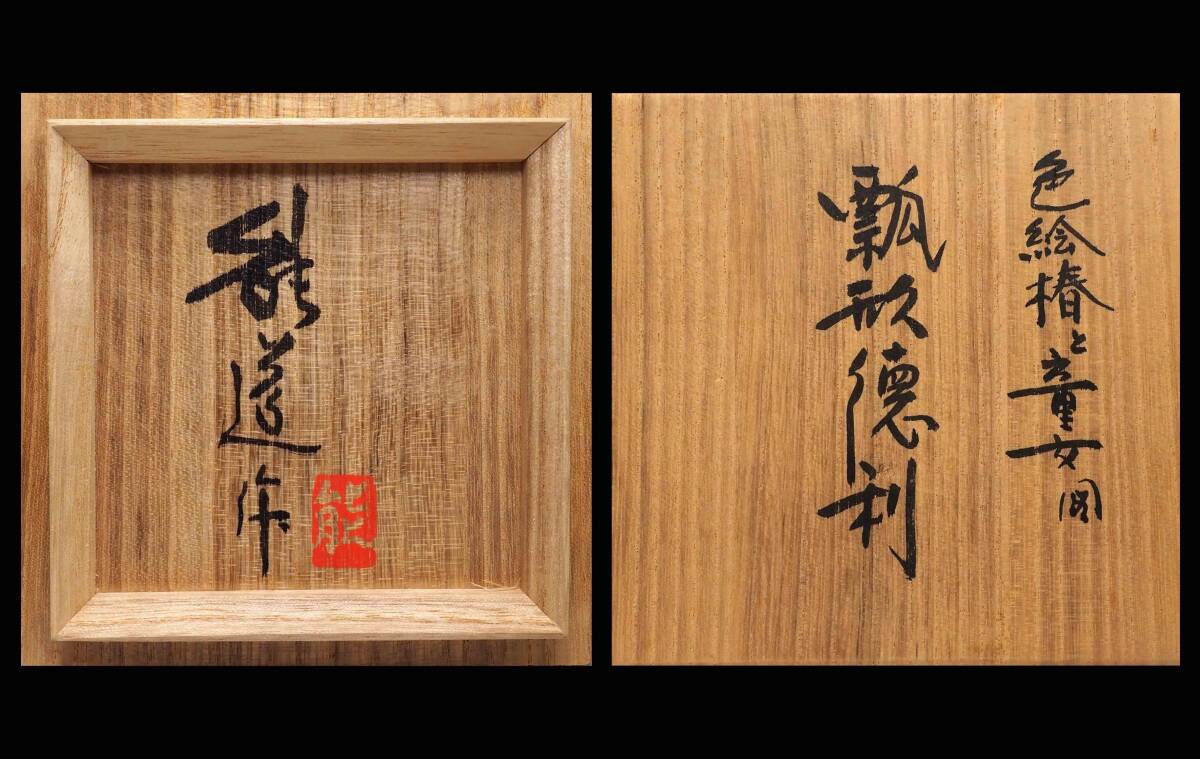 能道作
能
色絵椿と童女図
瓢形徳利